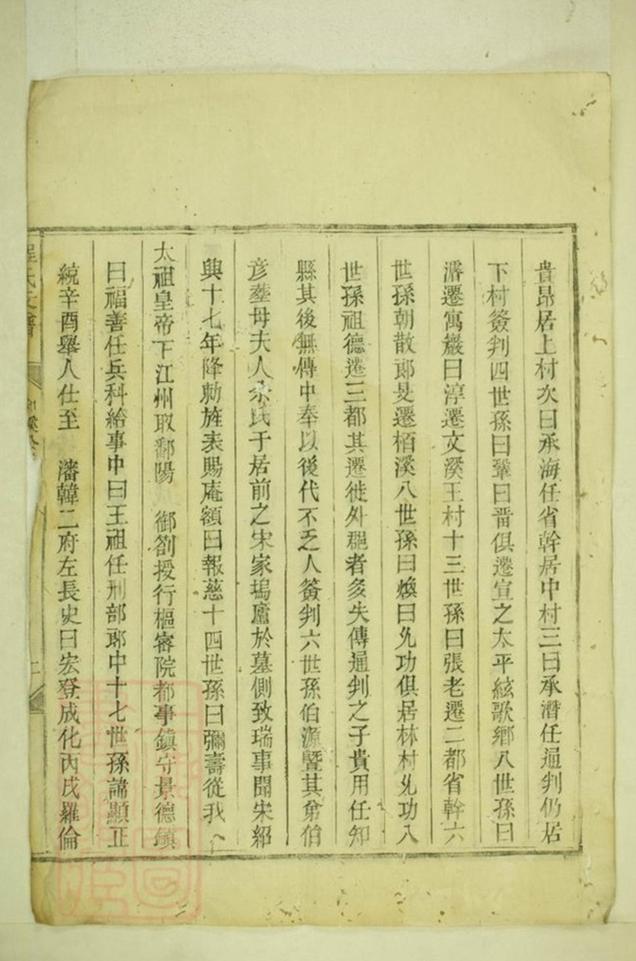 貴昂居上村次曰承海任省幹居中村三曰承潛任通判仍居
下村簽判四世孫曰鞏曰晋俱遷宣之太平絃歌鄉八世孫曰
濬遷寓巖曰淳遷文溪王村十三世孫曰張老遷二都省幹六
世孫朝散郎旻遷栢溪八世孫曰煥曰允功俱居林村允功入
世孫祖德遷三都其遷徙外郡者多失傳通判之子貴用任知
縣其後無傳中奉以後代不乏人簽判六世孫伯源暨其弟伯
彦塟母夫人余氏于居前之宋家塢廬於墓側致瑞事聞宋紹
興十七年降勅旌表賜庵額曰報慈十四世孫曰彌壽從我
太祖皇帝下江州取鄱陽 御劄授行樞密院都事鎮守景德鎮
曰福善任兵科給事中曰王祖任刑部郎中十七世孫諱顯正
統辛酉舉人仕至 瀋韓二府左長史曰宏登成化丙戌羅倫
程氏文會